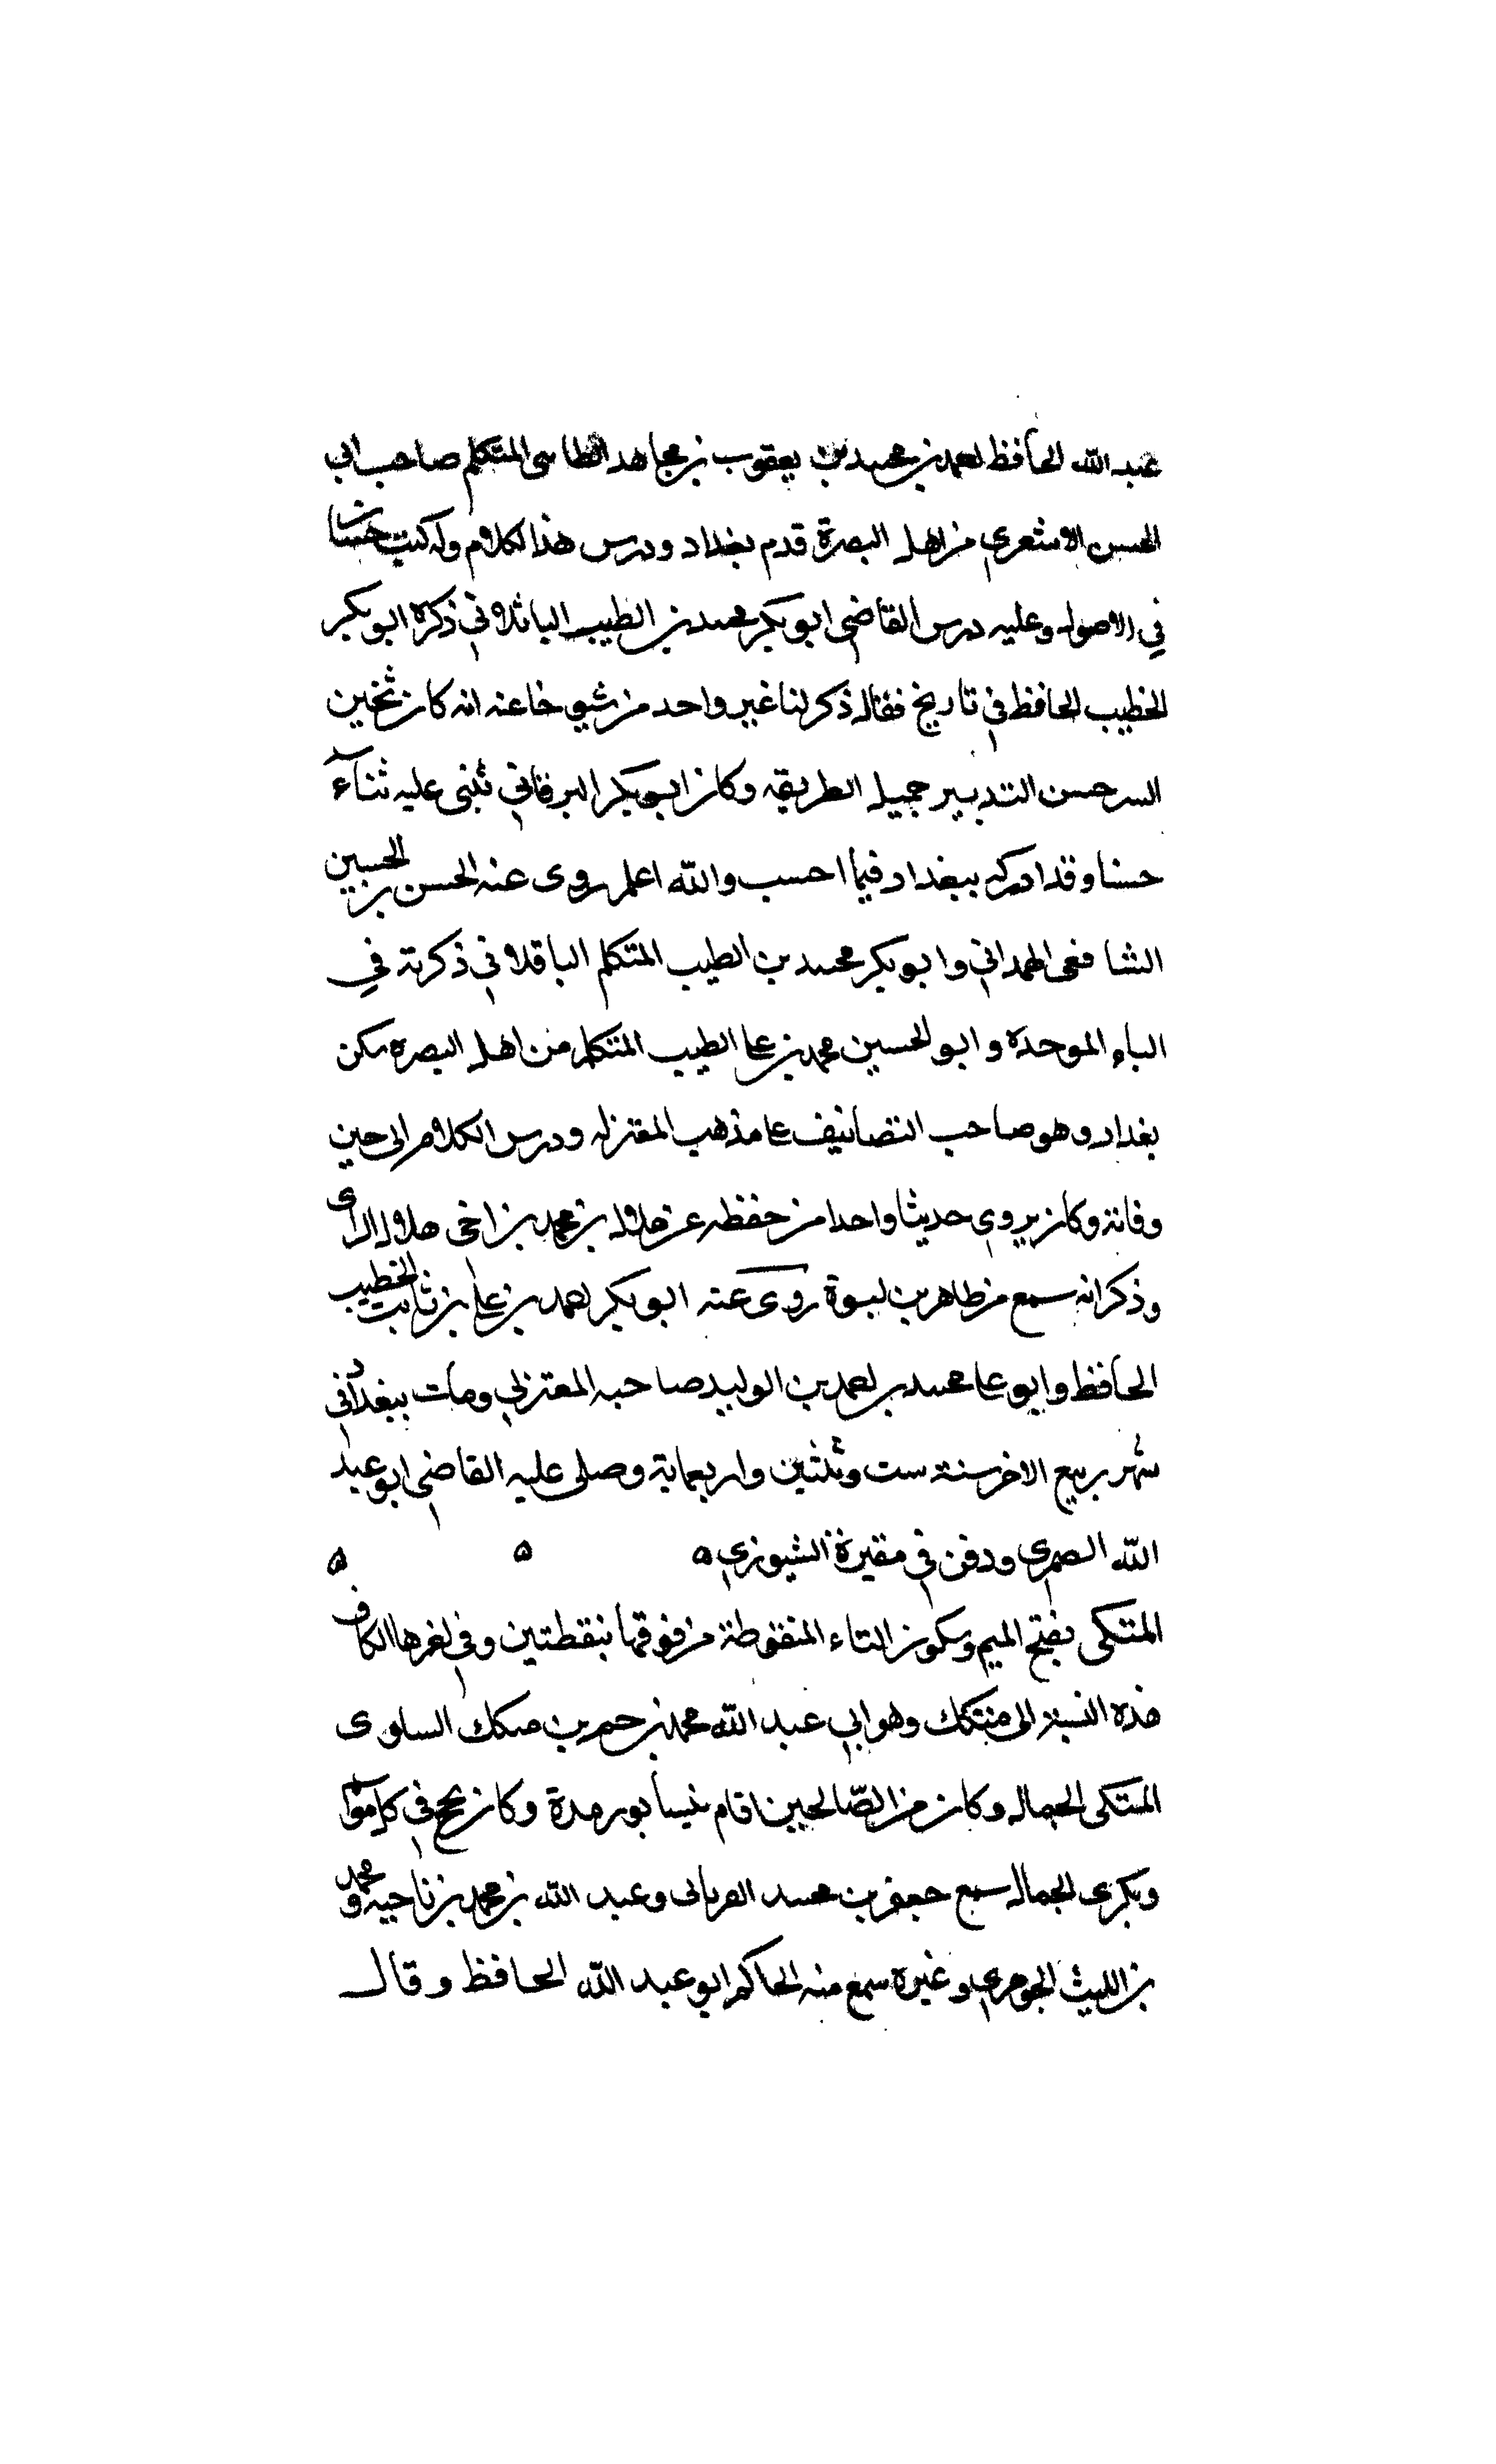 عبد الله الحافظ احمد بن محمد بن يعقوب بن مجاهد الطاسى المتكلم صاحب ابى
الحسن الاشعري من اهل البصرة قدم بغداد ودرس هذا الكلام وله كتب حسان
في الاصول وعليه درس القاضي ابو بكر محمد بن الطيب الباقلاني ذكره ابو بكر
الخطيب الحافظ في تاريخ فقال ذكر لنا غير واحد من شيوخنا عنه انه كان ثخين
السر حسن التدبير جميل الطريقه وكان ابو بكر البرقاني يثنى عليه ثناء
حسنا وقد ادركه ببغداد فيما احسب والله اعلم روى عنه الحسن بن الحسين
الشافعى الهمداني وابو بكر محمد بن الطيب المتكلم الباقلاني ذكرته في
الباء الموحدة وابو الحسين محمد بن على الطيب المتكلم من اهل البصره سكن
بغداد وهو صاحب التصانيف على مذهب المعتزله ودرس الكلام الى حين
وفاته وكان يروي حديثا واحدا من حفظه عن هلال بن محمد بن اخى هلال الراى
وذكر انه سمع من طاهر بن لبوة روى عنه ابو بكر احمد بن على بن ثابت الخطيب
الحافظ وابو على محمد بن احمد بن الوليد صاحبه المعتزلي ومات ببغداد في
شهر ربيع الاخر سنة ست وثلثين واربعماية وصلى عليه القاضي ابو عبد
الله الصمرى ودفن في مقبرة الشيونزي ه ه ه
المتكى بفتح الميم وسكون التاء المنقوطة من فوقها بنقطتين وفي اخرها الكاف
هذه النسبة الى متكك وهو ابي عبد الله محمد بن حم بن متكك الساوى
المتكى الجمال وكان من الصالحين اقام نيسابور مدة وكان يحج في كل موسم
ويكرى الجمال سمع جعفر بن محمد الفريابى وعبد الله بن محمد بن ناجيه ومحمد
بن الليث الجوهري وغيره سمع منه الحاكم ابو عبد الله الحافظ وقال